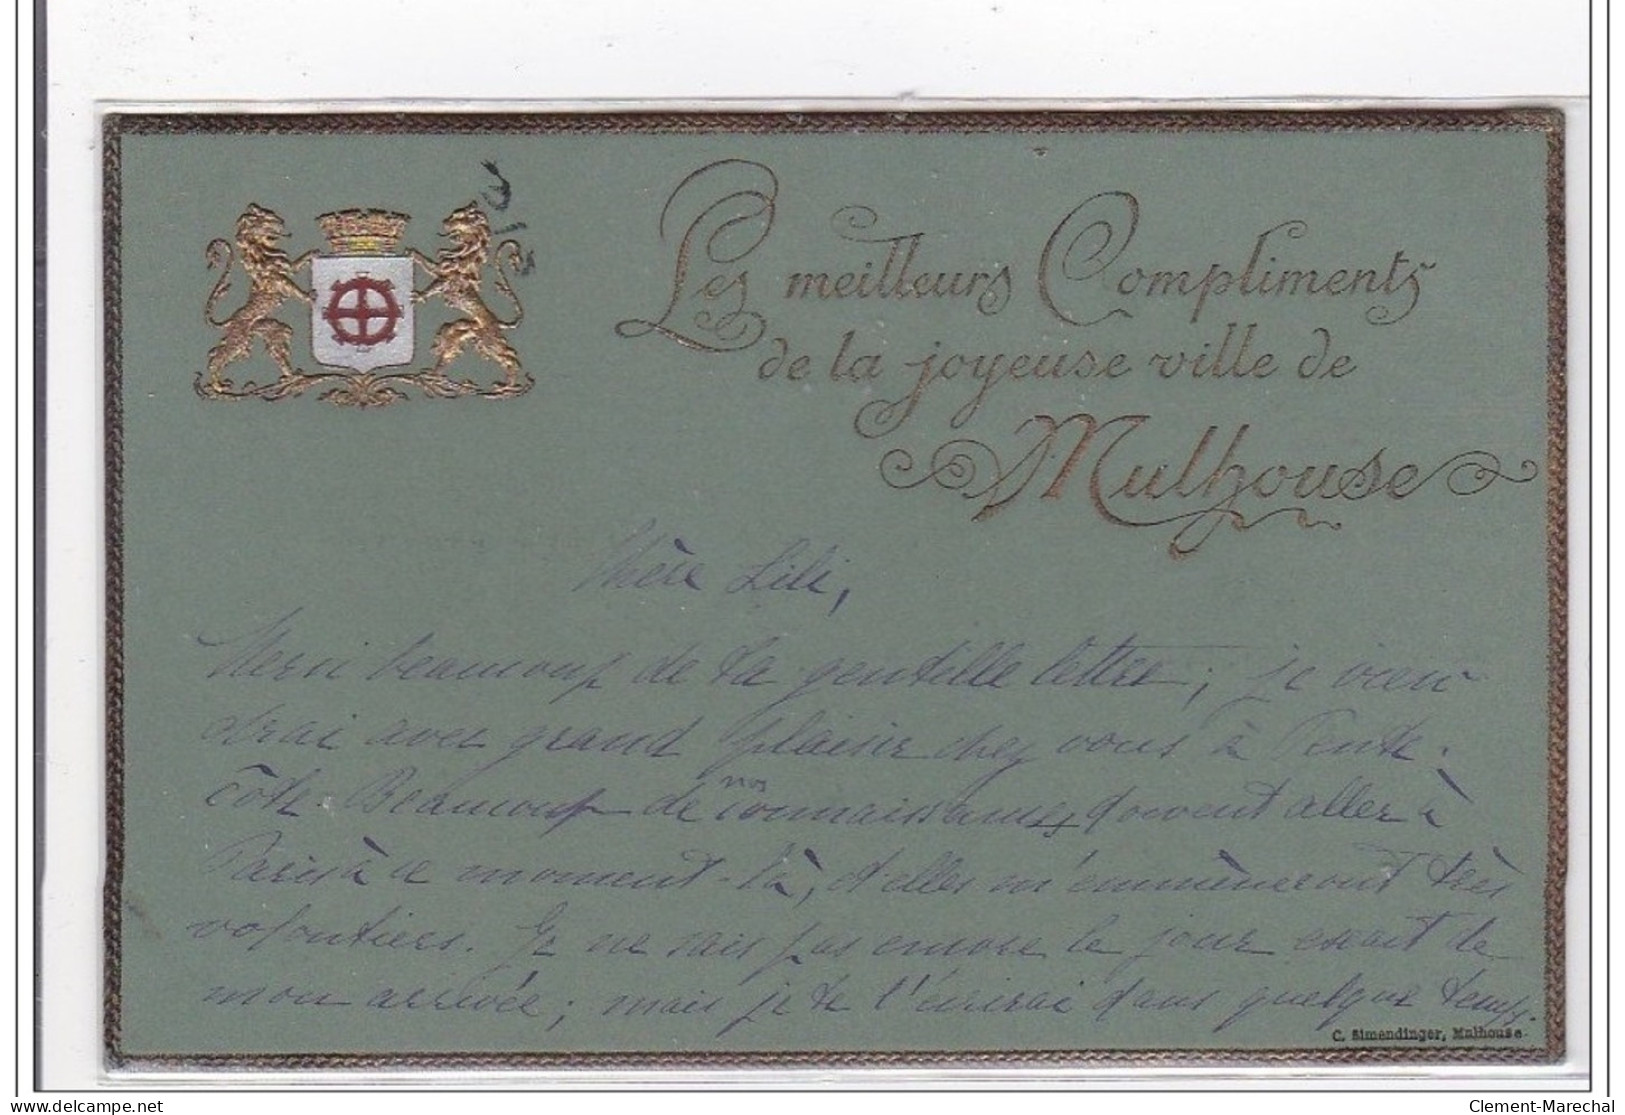 Les meilleurs Compliments
de la joyeuse ville de
Mulhouse
Chère Lili,
Merci beaucoup de ta gentille lettre; je vien
drai avec grand plaisir chez vous à Pente-
côte. Beaucoup de nos connaissances doivent aller à
Paris à ce moment-là, et elles m'emmèneront très
volontiers. Je ne sais pas encore le jour exact de
mon arrivée; mais je te l'écrirai dans quelque temps.
C. Simendinger, Mulhouse.
delcampe.net
Clement-Marechal